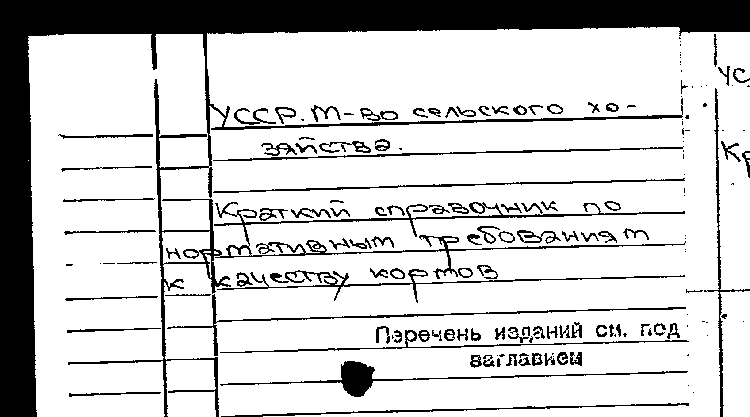 УССР. М-во сельского хо-
зяйства.
Краткий справочник по
нормативным требованиям
к качеству кормов
Перечень изданий см. под
заглавием